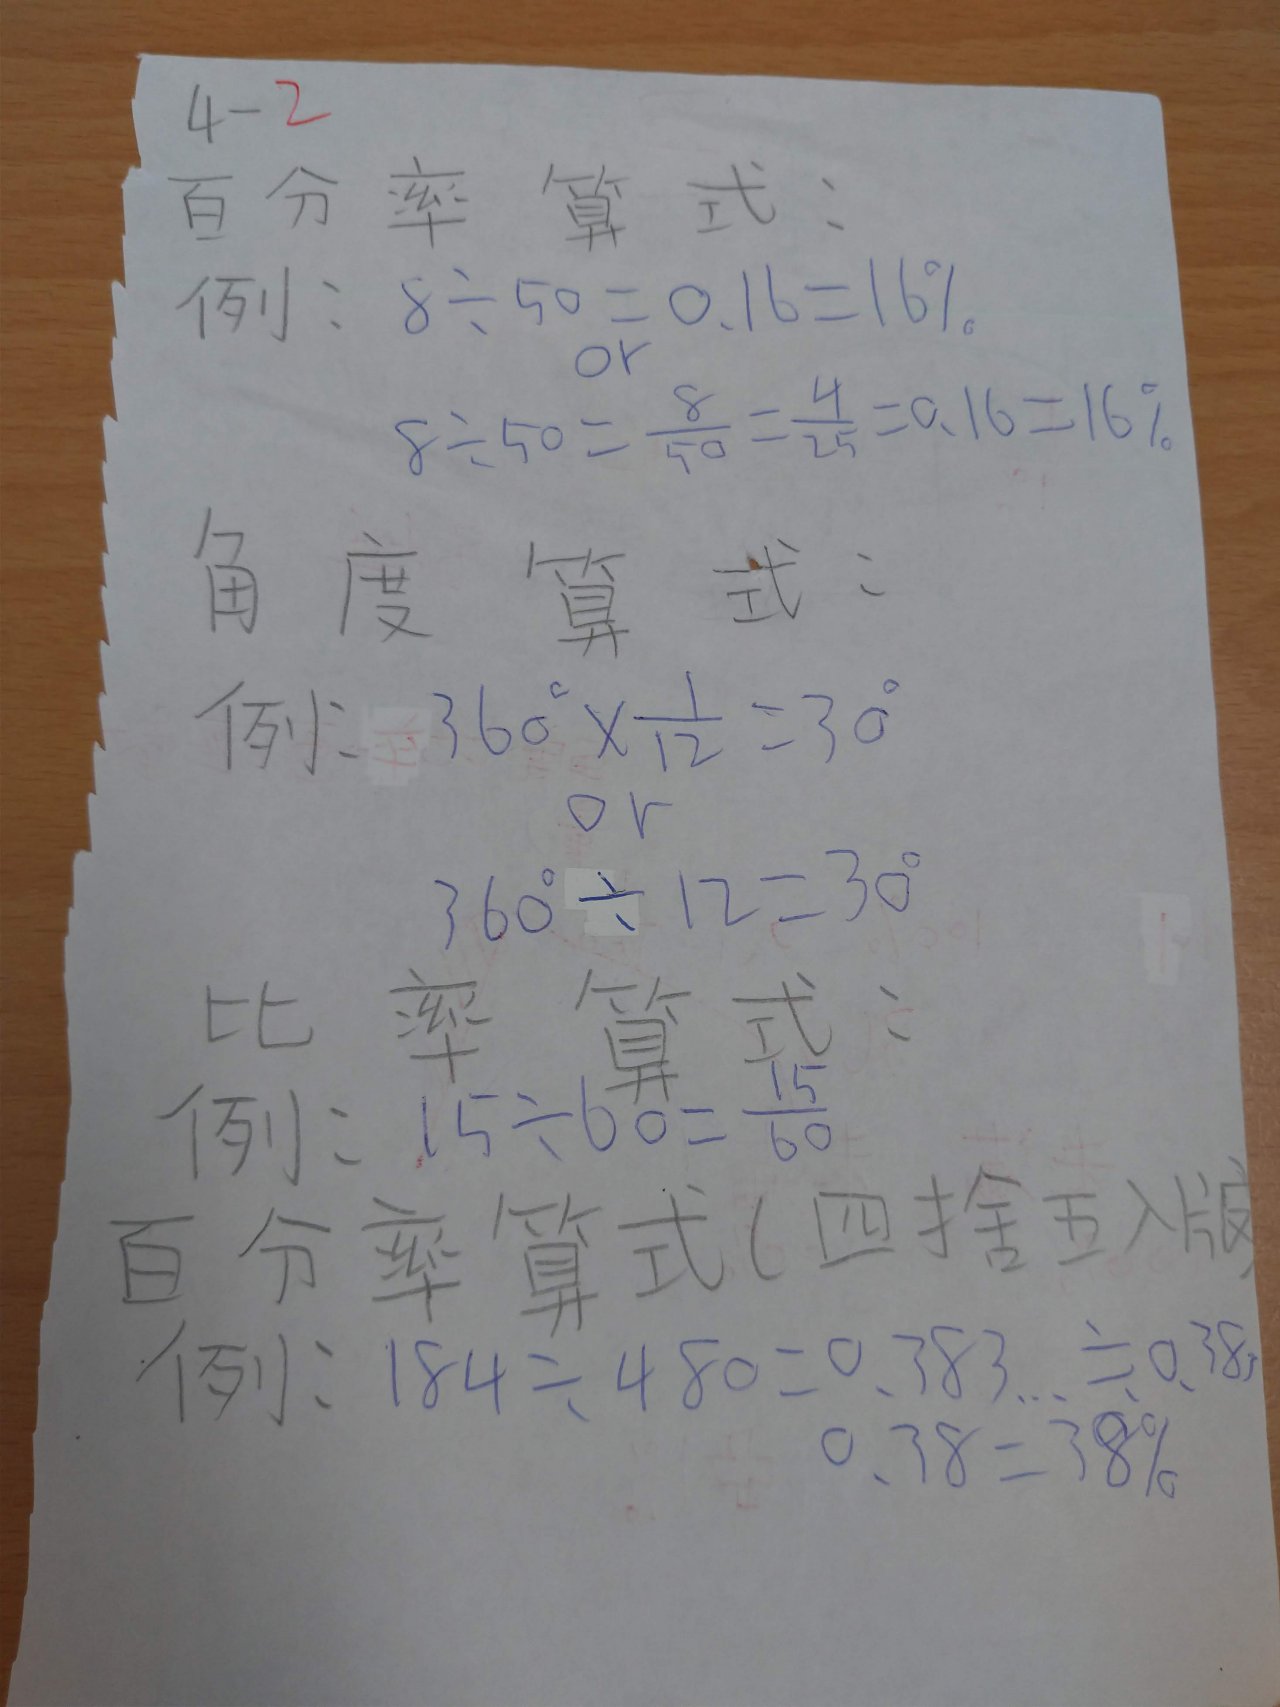 4-2
百分率算式：
例：8÷50=0.16=16%
or
8÷50=8/50=4/25=0.16=16%
角度算式：
例：360°×1/12=30°
or
360°÷12=30°
比率算式：
例：15÷60=15/60
百分率算式(四捨五入版)
例：184÷480=0.383...≒0.38,
0.38=38%